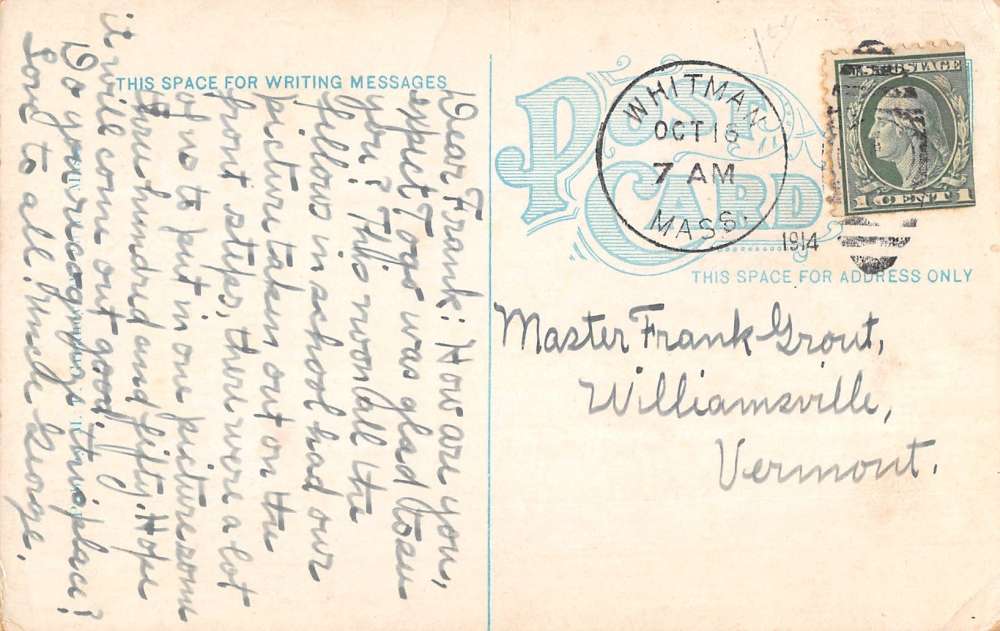 THIS SPACE FOR WRITING MESSAGES
Dear Frank: How are you,
expect Togo was glad to see
you? This noon all the
fellows in school had our
picture taken out on the
front steps, there were a lot
of us to get in one picture some
three hundred and fifty. Hope
it will come out good.
Do you recognize this place?
Love to all. Uncle George.
POST
CARD
WHITMAN
OCT 16
7 AM
MASS.
1914
U.S. POSTAGE
1 CENT 1
THIS SPACE FOR ADDRESS ONLY
Master Frank Grout,
Williamsville,
Vermont.